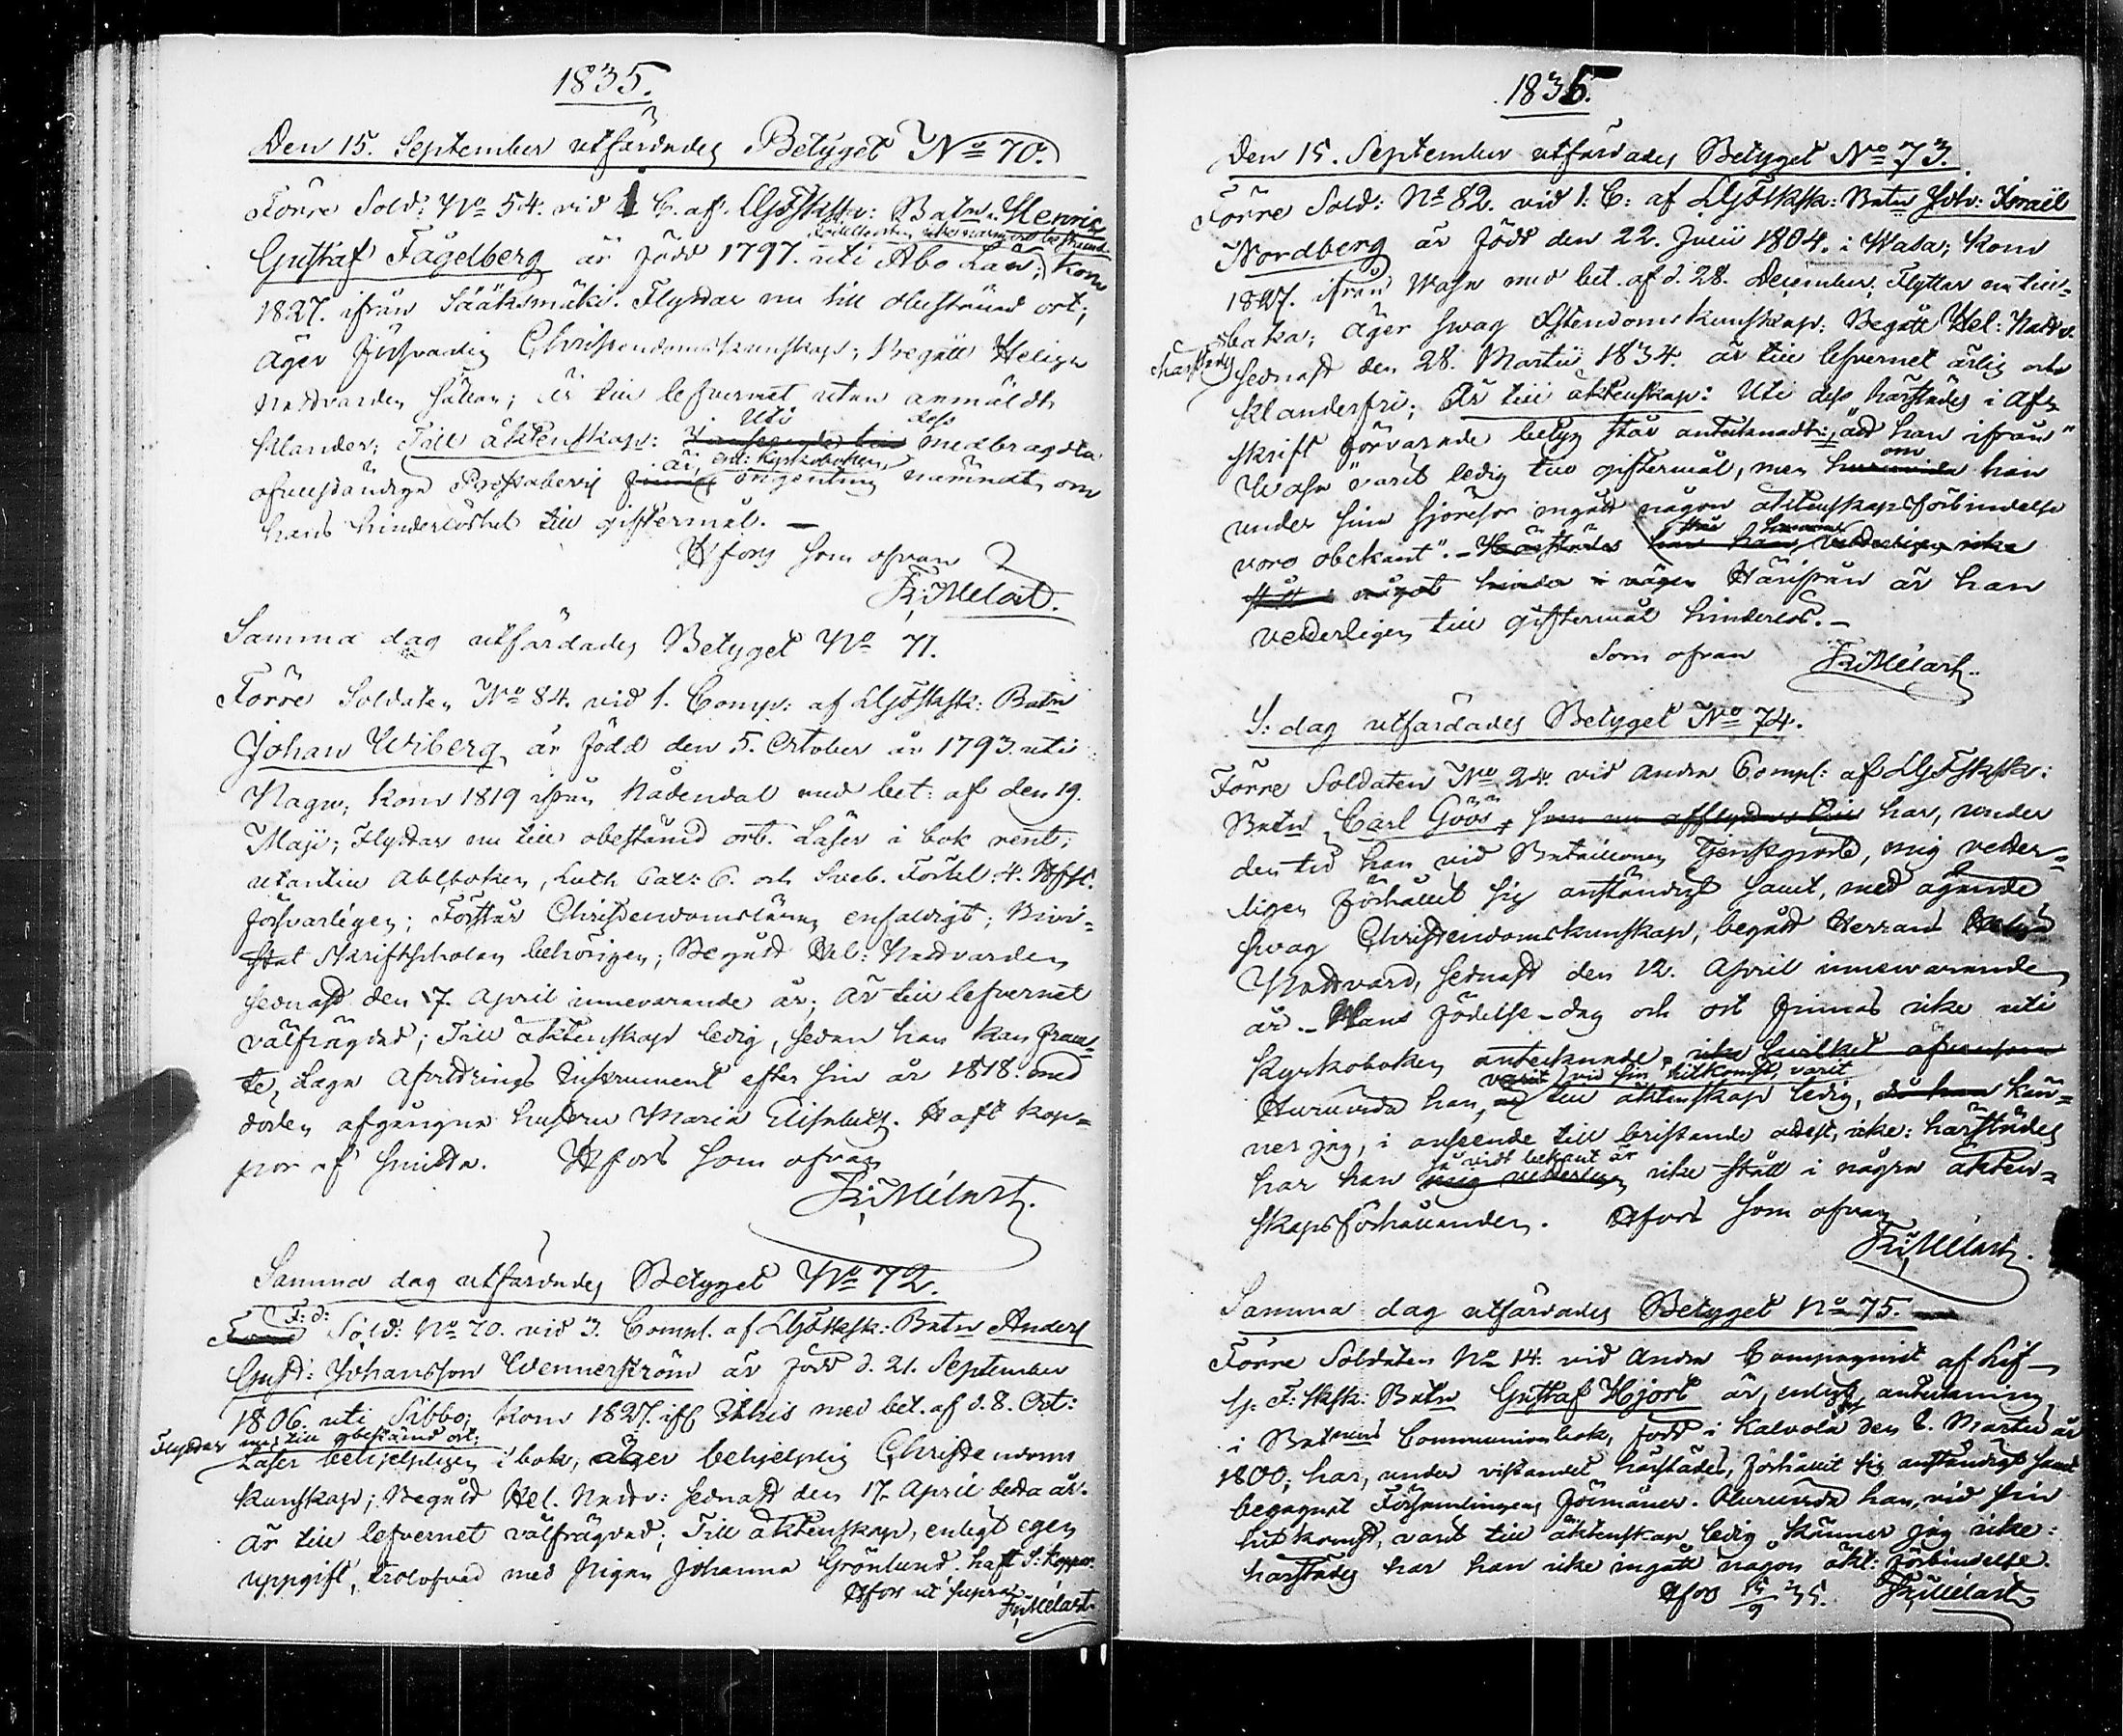 1835.
Den 15. September utfärdades Betyget No 70.
Förre Sold: No 54. vid 1 C. af LGFSkSk: Batn. Henric
födelseorten icke närmare bestämd
Gustaf Fagelberg är född 1797. uti Åbo Län; kom
1827. ifrån Sääksmäki. Flyttar nu till obestämd ort;
äger försvarlig Christendomskunskap; Begått Heliga
Nattvarden sällan; är till lefvernet utan anmäldt
Uti dess
klander; Till äktenskap: medbragdta
är, enl: Kyrkoboken
ofullständiga Prestabevis ingenting nämndt om
hans hinderlöshet till giftermål. —
Hfors som ofvan
Fr: Melart.
Samma dag utfärdades Betyget No 71.
Förre Soldaten No 84. vid 1. Comp: af LGFSkSk: Batn
Johan Wiberg, är född den 5. October år 1793. uti
Nagu; kom 1819 ifrån Nådendal med bet: af den 19.
Maji; Flyttar nu till obestämd ort. Läser i bok rent;
utantill Abcboken, Luth. Cat: C. och Sveb. Förkl: 4. Hfst.
försvarligen; Förstår Christendomsläran enfaldigt; Bivi-
stat Skriftskolan behörigen; Begått Hel: Nattvarden
sednast den 17. April innevarande år; Är till lefvernet
välfrägdad; Till äktenskap ledig, sedan han kan fram-
te, Laga Afvittrings Instrument efter sin år 1818. med
döden afgångna hustru Maria Elisabeth. Haft kop-
por af smitta. Hfors som ofvan
Fr: Melart.
Samma dag utfärdades Betyget No 72.
F: d:
Sold: No 70. vid 3. Comp. af LGFSkSk: Batn Anders
Gust: Johansson Wennerström är född d. 21. September
1806. uti Sibbo; kom 1827. ifr. Ithis med bet. af d. 8. Oct:
Flyttar nu till obestämd ort;
Läser behjelpligen i bok, äger behjelplig Christendoms
kunskap; Begått Hel. Nattv: sednast den 17. April detta år.
Är till lefvernet välfrägdad; Till äktenskap, enligt egen
uppgift, trolofvad med Pigan Johanna Grönlund. haft S: koppor.
Hfors ut supra
Fr: Melart.
1835.
Den 15. September utfärdades Betyget No 73.
Förre Sold: No 82. vid 1: C: af LGFSkSk: Batn Joh: Israël
Nordberg är född den 22. Junii 1804. i Wasa; kom
1827. ifrån Wasa med bet. af d. 28. December; Flyttar nu till-
baka; äger svag Xstendomskunskap; Begått Hel: Nattv.
härstädes
sednast den 28. Martii 1834. är till lefvernet ärlig och
klanderfri; Är till äktenskap: Uti dess härstädes i Af-
skrift förvarade betyg står antecknadt: "att han ifrån"
om
Wasa "varit ledig till giftermål, men han
under sina sjöresor ingått någon äktenskapsförbindelse
voro obekant". — Härifrån är han
vederligen till giftermål hinderlös. —
Som ofvan Fr: Melart.
S: dag utfärdades Betyget No 74.
Förre Soldaten No 24. vid Andra Comp: af LGFSkSk:
Batn Carl Göös, har, under
den tid han vid Bataillonen tjenstgjorde, mig veter-
ligen förhållit sig anständigt samt, med ägande
svag Christendomskunskap, begått Herrans
Nattvard, sednast den 12. April innevarande
år. — Hans födelse-dag och ort finnas icke uti
Kyrkoboken antecknade.
vid sin hitkomst, varit
Huruvida han, till äktenskap ledig, kän-
ner jag, i anseende till bristande attest, icke: härstädes
så vidt bekant är
har han icke stått i några äkten-
skapsförhållanden. Hfors som ofvan
Fr: Melart.
Samma dag utfärdades Betyget No 75.
Förre Soldaten No 14. vid Andra Compagniet af Lif-
G: F: SkSk: Batn Gustaf Hjort är, enligt anteckning
i Batnens Communionbok, född i Kalvola den 8. Martii år
1800; har, under vistandet härstädes, förhållit sig anständigt samt
begagnat Församlingens förmåner. Huruvida han, vid sin
hitkomst, varit till äktenskap ledig känner jag icke:
härstädes har han icke ingått någon äkt: förbindelse.
Hfors 15/9 35. Fr: Melart.